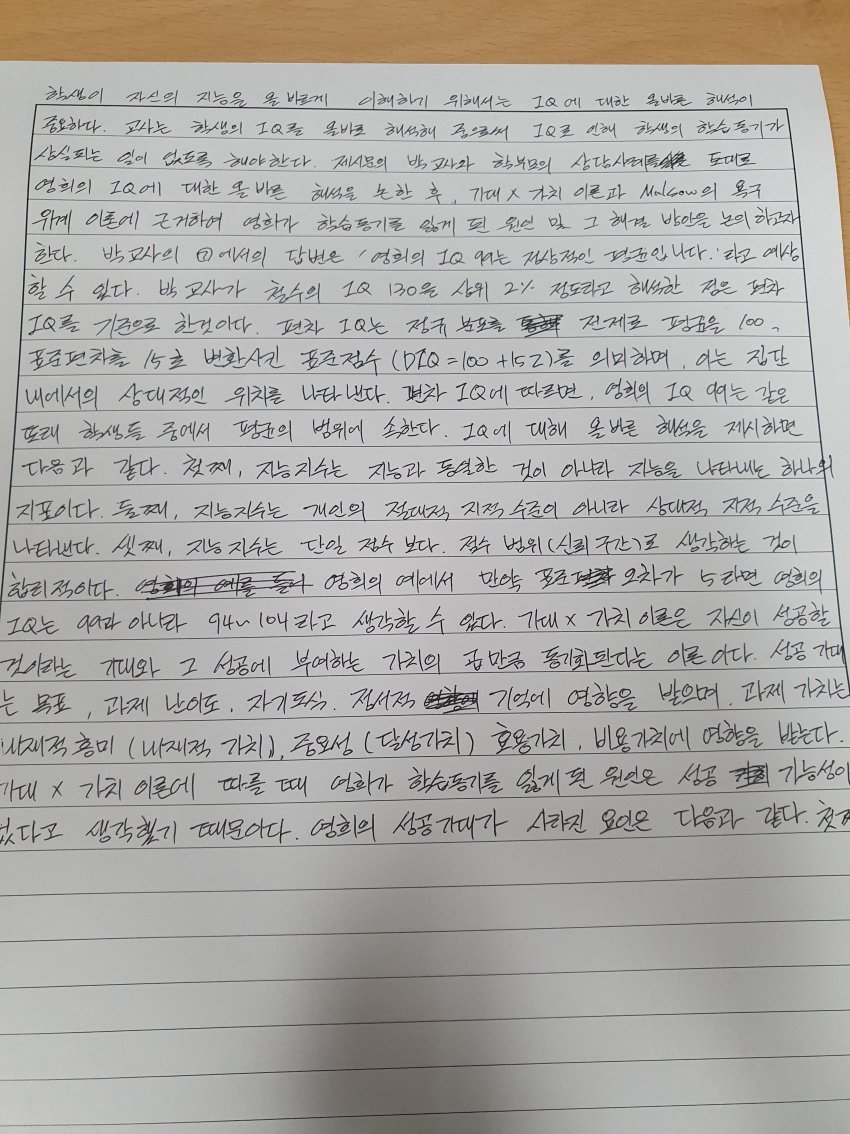 학생이 자신의 지능을 올바르게 이해하기 위해서는 IQ에 대한 올바른 해석이
중요하다. 교사는 학생의 IQ를 올바로 해석해 줌으로써 IQ로 인해 학생의 학습동기가
상실되는 일이 없도록 해야한다. 제시문의 박교사와 학부모의 상담사례를 토대로
영희의 IQ에 대한 올바른 해석을 논한 후, 기대 X 가치 이론과 Malsow의 욕구
위계 이론에 근거하여 영희가 학습동기를 잃게 된 원인 및 그 해결 방안을 논의하고자
한다. 박교사의 ㉠에서의 답변은 '영희의 IQ 99는 정상적인 평균입니다.'라고 예상
할 수 있다. 박교사가 철수의 IQ 130을 상위 2% 정도라고 해석한 점은 편차
IQ를 기준으로 한것이다. 편차 IQ는 정규 분포를 전제로 평균을 100,
표준편차를 15로 변환시킨 표준점수 (DIQ=100+15Z)를 의미하며, 이는 집단
내에서의 상대적인 위치를 나타낸다. 편차 IQ에 따르면, 영희의 IQ 99는 같은
또래 학생들 중에서 평균의 범위에 속한다. IQ에 대해 올바른 해석을 제시하면
다음과 같다. 첫째, 지능지수는 지능과 동일한 것이 아니라 지능을 나타내는 하나의
지표이다. 둘째, 지능지수는 개인의 절대적 지적 수준이 아니라 상대적 지적 수준을
나타낸다. 셋째, 지능지수는 단일 점수 보다. 점수 범위(신뢰구간)로 생각하는 것이
합리적이다. 영희의 예에서 만약 표준 오차가 5라면 영희의
IQ는 99과 아니라 94~104라고 생각할 수 있다. 기대 X 가치 이론은 자신이 성공할
것이라는 기대와 그 성공에 부여하는 가치의 곱만큼 동기화된다는 이론이다. 성공 기대
는 목표, 과제 난이도, 자기도식, 정서적 기억에 영향을 받으며, 과제 가치는
내재적 흥미 (내재적 가치), 중요성 (달성가치) 효용가치, 비용가치에 영향을 받는다.
기대 X 가치 이론에 따를 때 영희가 학습동기를 잃게 된 원인은 성공 가능성이
없다고 생각했기 때문이다. 영희의 성공기대가 사라진 요인은 다음과 같다. 첫째